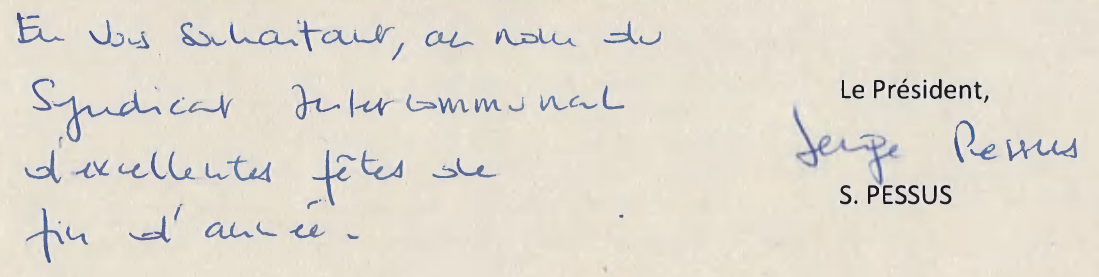 En vous souhaitant, au nom du
Syndicat Intercommunal
d'excellentes fêtes de
fin d'année.
Le Président,
Serge Pessus
S. PESSUS